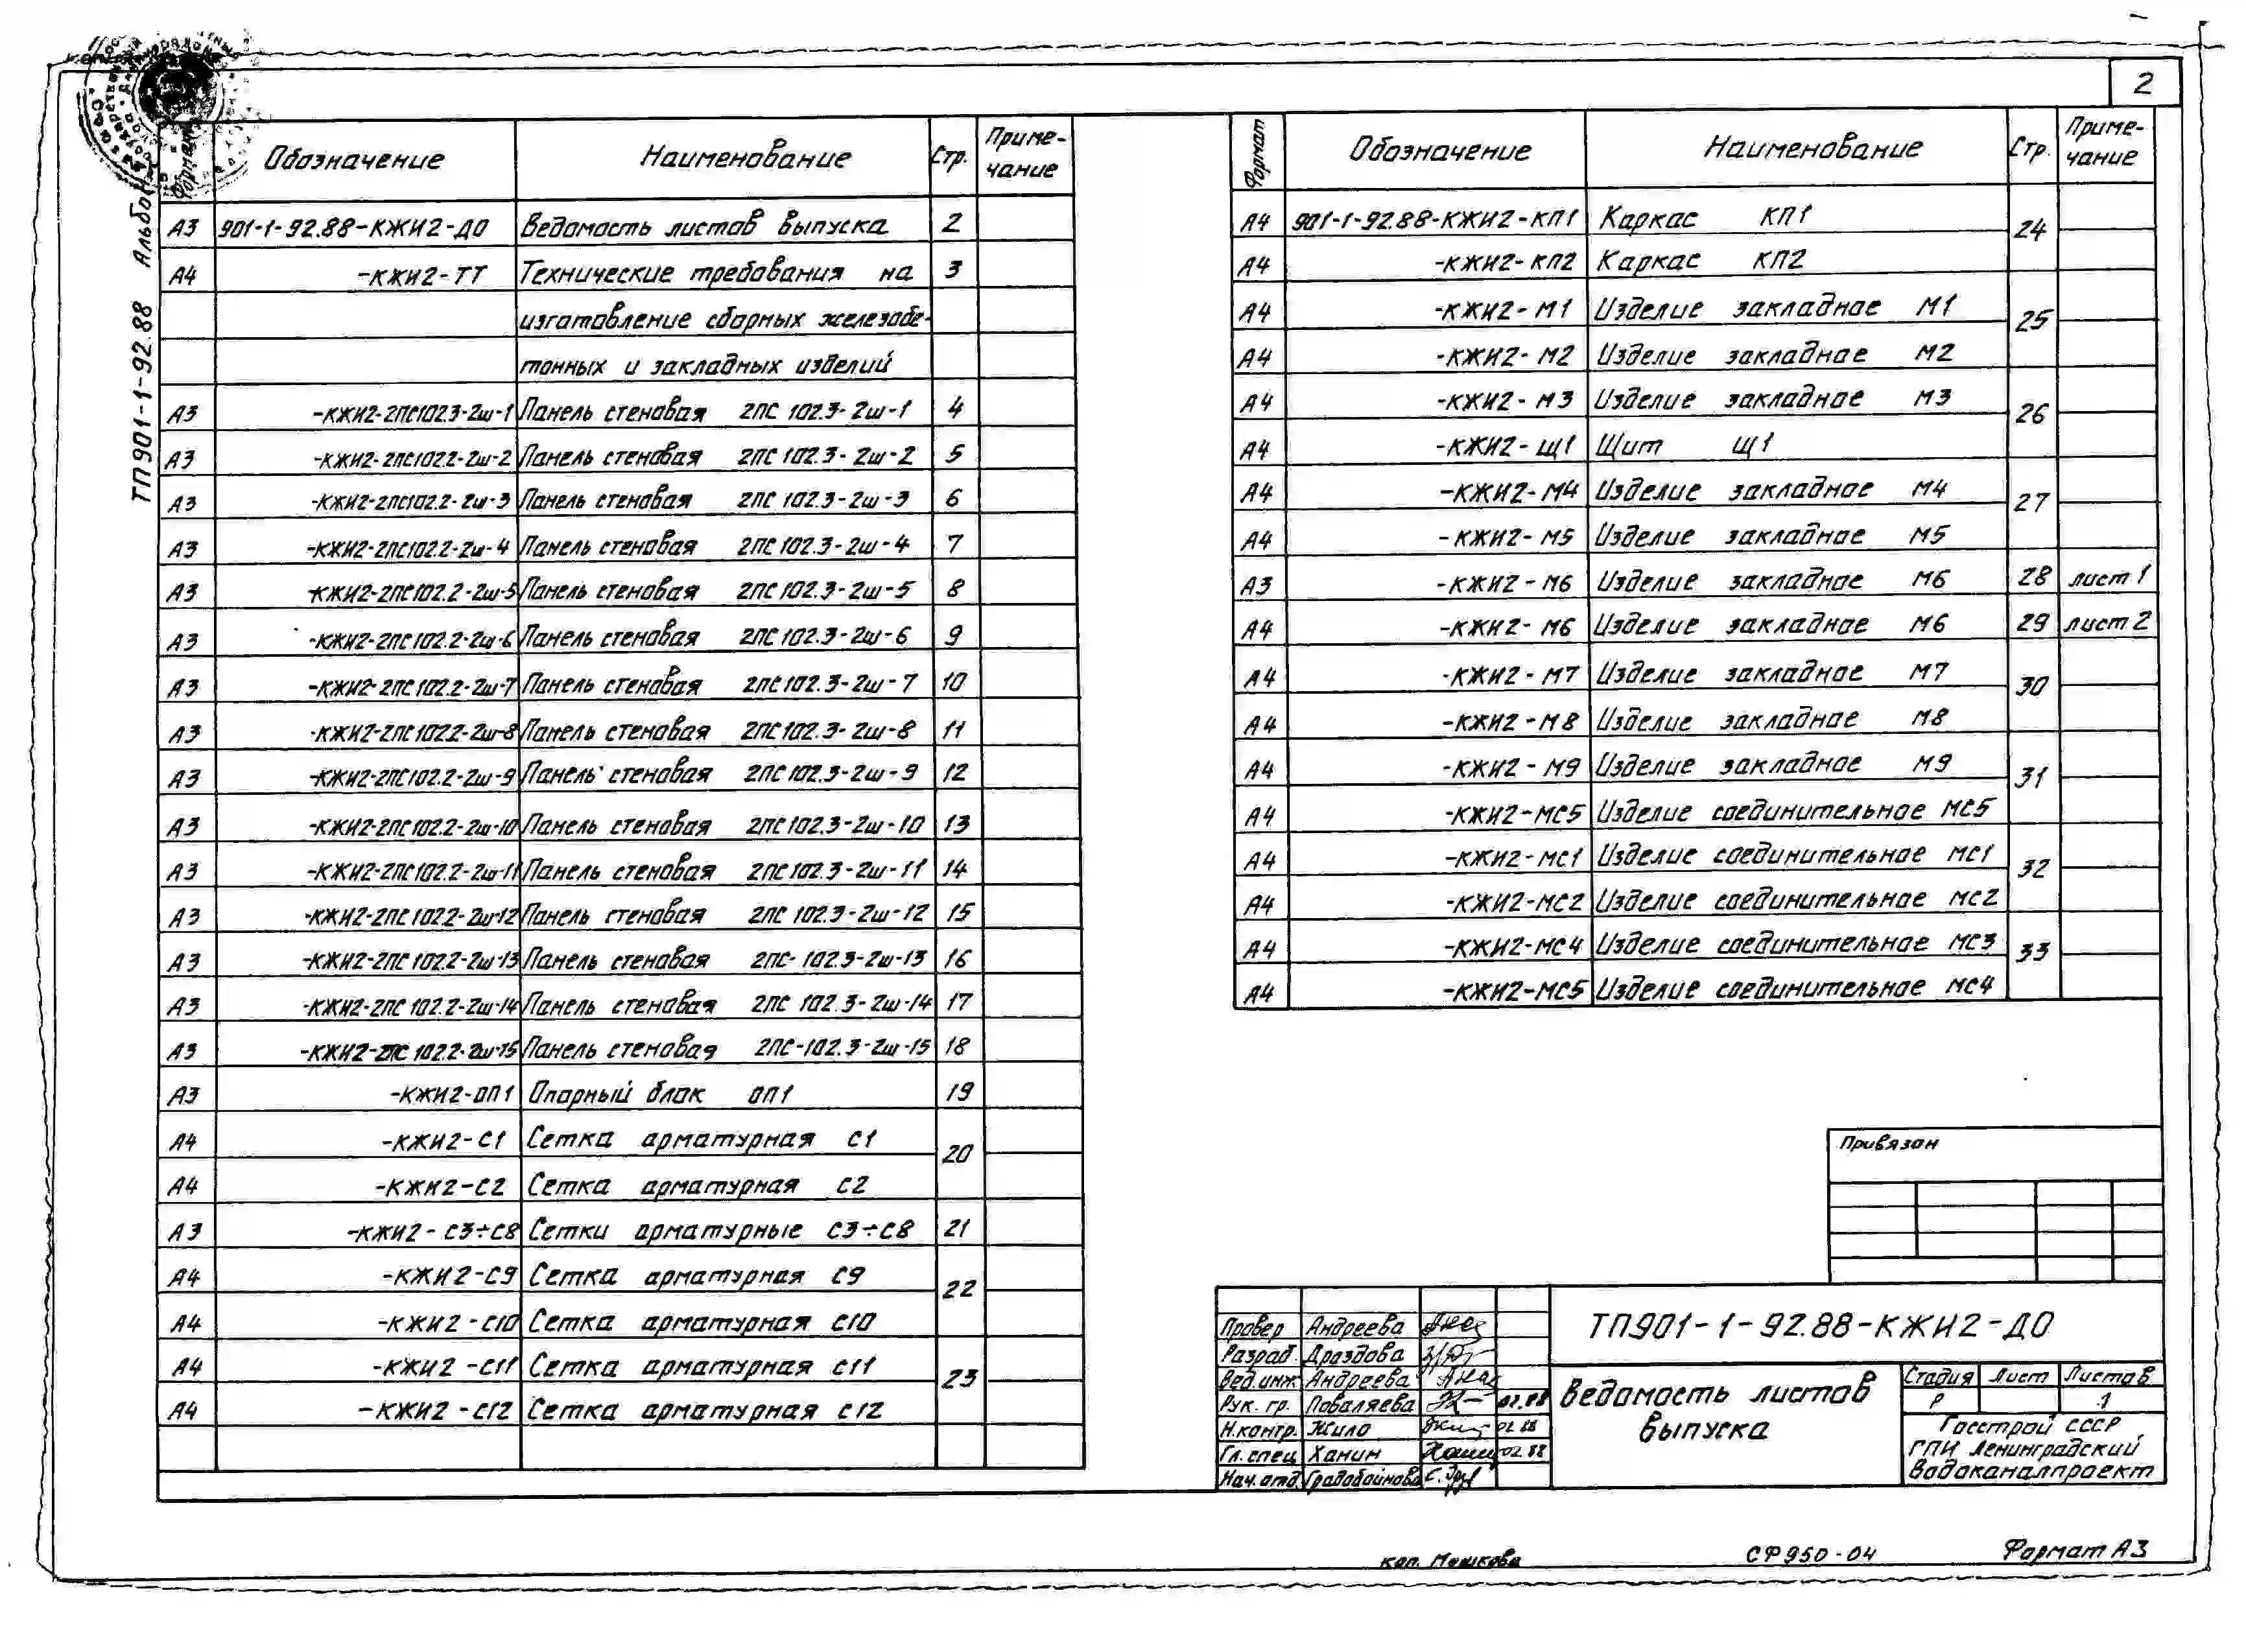 2
ТП901-1-92.88 Альбом
Формат Обозначение Наименование Стр. Приме-
чание
А3 901-1-92.88-КЖИ2-ДО Ведомость листов выпуска 2
А4 -КЖИ2-ТТ Технические требования на 3
изготовление сборных железобе-
тонных и закладных изделий
А3 -КЖИ2-2ПС102.3-2ш-1 Панель стеновая 2ПС 102.3-2ш-1 4
А3 -КЖИ2-2ПС102.2-2ш-2 Панель стеновая 2ПС 102.3-2ш-2 5
А3 -КЖИ2-2ПС102.2-2ш-3 Панель стеновая 2ПС 102.3-2ш-3 6
А3 -КЖИ2-2ПС102.2-2ш-4 Панель стеновая 2ПС 102.3-2ш-4 7
А3 -КЖИ2-2ПС102.2-2ш-5 Панель стеновая 2ПС 102.3-2ш-5 8
А3 -КЖИ2-2ПС102.2-2ш-6 Панель стеновая 2ПС 102.3-2ш-6 9
А3 -КЖИ2-2ПС102.2-2ш-7 Панель стеновая 2ПС102.3-2ш-7 10
А3 -КЖИ2-2ПС102.2-2ш-8 Панель стеновая 2ПС102.3-2ш-8 11
А3 -КЖИ2-2ПС102.2-2ш-9 Панель стеновая 2ПС102.3-2ш-9 12
А3 -КЖИ2-2ПС102.2-2ш-10 Панель стеновая 2ПС102.3-2ш-10 13
А3 -КЖИ2-2ПС102.2-2ш-11 Панель стеновая 2ПС102.3-2ш-11 14
А3 -КЖИ2-2ПС102.2-2ш-12 Панель стеновая 2ПС 102.3-2ш-12 15
А3 -КЖИ2-2ПС102.2-2ш-13 Панель стеновая 2ПС-102.3-2ш-13 16
А3 -КЖИ2-2ПС102.2-2ш-14 Панель стеновая 2ПС 102.3-2ш-14 17
А3 -КЖИ2-2ПС102.2-2ш-15 Панель стеновая 2ПС-102.3-2ш-15 18
А3 -КЖИ2-ОП1 Опорный блок ОП1 19
А4 -КЖИ2-С1 Сетка арматурная С1 20
А4 -КЖИ2-С2 Сетка арматурная С2
А3 -КЖИ2-С3÷С8 Сетки арматурные С3÷С8 21
А4 -КЖИ2-С9 Сетка арматурная С9 22
А4 -КЖИ2-С10 Сетка арматурная С10
А4 -КЖИ2-С11 Сетка арматурная С11 23
А4 -КЖИ2-С12 Сетка арматурная С12
Формат Обозначение Наименование Стр. Приме-
чание
А4 901-1-92.88-КЖИ2-КП1 Каркас КП1 24
А4 -КЖИ2-КП2 Каркас КП2
А4 -КЖИ2-М1 Изделие закладное М1 25
А4 -КЖИ2-М2 Изделие закладное М2
А4 -КЖИ2-М3 Изделие закладное М3 26
А4 -КЖИ2-Щ1 Щит Щ1
А4 -КЖИ2-М4 Изделие закладное М4 27
А4 -КЖИ2-М5 Изделие закладное М5
А3 -КЖИ2-М6 Изделие закладное М6 28 лист 1
А4 -КЖИ2-М6 Изделие закладное М6 29 лист 2
А4 -КЖИ2-М7 Изделие закладное М7 30
А4 -КЖИ2-М8 Изделие закладное М8
А4 -КЖИ2-М9 Изделие закладное М9 31
А4 -КЖИ2-МС5 Изделие соединительное МС5
А4 -КЖИ2-МС1 Изделие соединительное МС1 32
А4 -КЖИ2-МС2 Изделие соединительное МС2
А4 -КЖИ2-МС4 Изделие соединительное МС3 33
А4 -КЖИ2-МС5 Изделие соединительное МС4
Привязан
Провер Андреева
Разраб. Дроздова
Вед.инж Андреева
Рук. гр. Поваляева 02.88
Н.контр. Жило 02 88
Гл.спец Ханин 02.88
Нач.отд. Градобойнова
ТП901-1-92.88-КЖИ2-ДО
Ведомость листов
выпуска
Стадия Лист Листов
Р 1
Госстрой СССР
ГПИ Ленинградский
Водоканалпроект
коп. Машкова СФ950-04 Формат А3